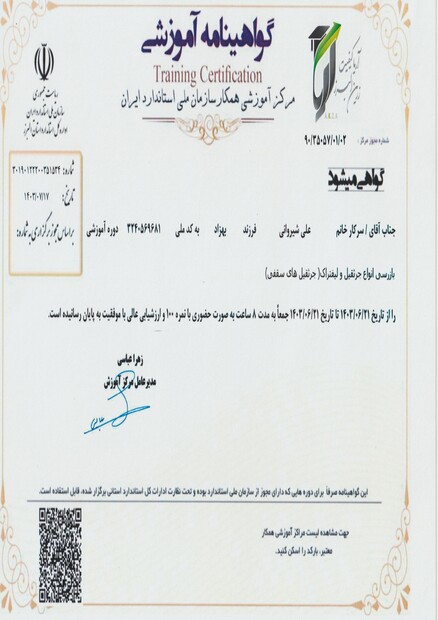 گواهینامه آموزشی
Training Certification
مرکز آموزشی همکار سازمان ملی استاندارد ایران
ریاست جمهوری
سازمان ملی استاندارد ایران
اداره کل استاندارد استان البرز
شماره مجوز مرکز :
۹۰/۳۵۰۵۷/۰۱/۰۲
شماره: ۳۰۱۹۰۱۲۲۲۰۰۳۵۱۵۳۴
تاریخ: ۱۴۰۳/۰۷/۱۷
براساس مجوز برگزاری به شماره:
گواهی میشود
جناب آقای / سرکار خانم علی شیروانی فرزند بهزاد به کد ملی ۳۲۴۰۵۶۹۶۸۱ دوره آموزشی
بازرسی انواع جرثقیل و لیفتراک( جرثقیل های سقفی)
را از تاریخ ۱۴۰۳/۰۶/۲۱ تا تاریخ ۱۴۰۳/۰۶/۲۱ جمعاً به مدت ۸ ساعت به صورت حضوری با نمره ۱۰۰ و ارزشیابی عالی با موفقیت به پایان رسانیده است.
زهرا عباسی
مدیرعامل مرکز آموزش
این گواهینامه صرفاً برای دوره هایی که دارای مجوز از سازمان ملی استاندارد بوده و تحت نظارت ادارات کل استاندارد استانی برگزار شده، قابل استفاده است.
جهت مشاهده لیست مراکز آموزشی همکار
معتبر، بارکد را اسکن کنید.